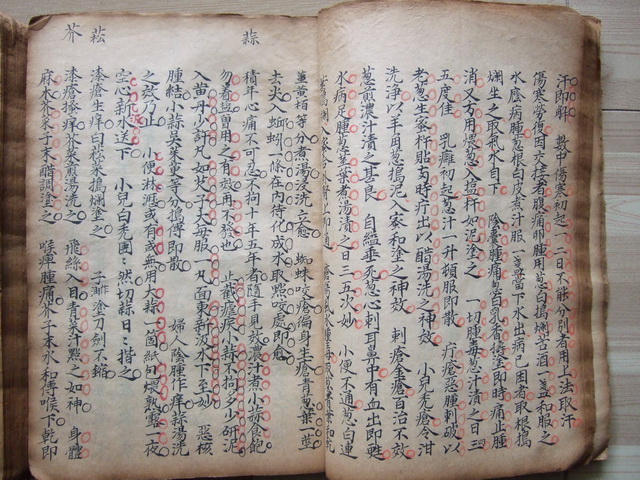 汗即解 數中傷寒初起一二日不能分別者用上法取汗
傷寒勞復因交接者腹痛卵腫用葱白搗爛苦酒一盞和服之
水𤵜病腫葱根白皮煮汁服一盞當下水出病已困者取根搗
爛坐之取氣水自下 陰囊腫痛葱白乳香搗塗即時痛止腫
消又方用煨葱入塩杵如泥塗之 一切腫毒葱汁漬之日三
五度佳 乳癰初起葱汁一升頓服即散 疔瘡惡腫刺破以
老葱生蜜杵貼兩時疔出以醋湯洗之神效 小兒禿瘡令泔
洗淨以羊角葱搗泥入蜜和塗之神效 刺瘡金瘡百治不效
葱煎濃汁漬之甚良 自縊垂死葱心刺耳鼻中有血出即甦
水病足腫葱莖葉煮湯漬之日三五次妙 小便不通葱白連
蒜
薑黃栢等分煮湯浸洗立愈 蜘蛛咬瘡徧身生瘡青葱葉一莖
去尖入蚯蚓一條在內待化成水取點咬處即愈
積年心痛不可忍不拘十年五年者隨手見效濃汁煮小蒜食飽
勿着塩曽用之有效再不發也 止截瘧疾小蒜不拘多少研泥
入黃丹少許丸如芡子大每服一丸面東新汲水下至妙 惡核
腫結小蒜吳茱萸等分搗傅即散 婦人陰腫作痒蒜湯洗
之效乃止 小便淋瀝或有或無用大蒜一箇紙包煨熟露一夜
空心新水送下 小兒白禿團團然切蒜日日揩之
菘
漆瘡生痒白菘菜搗爛塗之
芥
漆瘡搔痒芥菜煎湯洗之 飛絲入目青菜汁點之如神 身體
麻木芥菜子末醋調塗之 喉痺腫痛芥子末水和傅喉下乾即